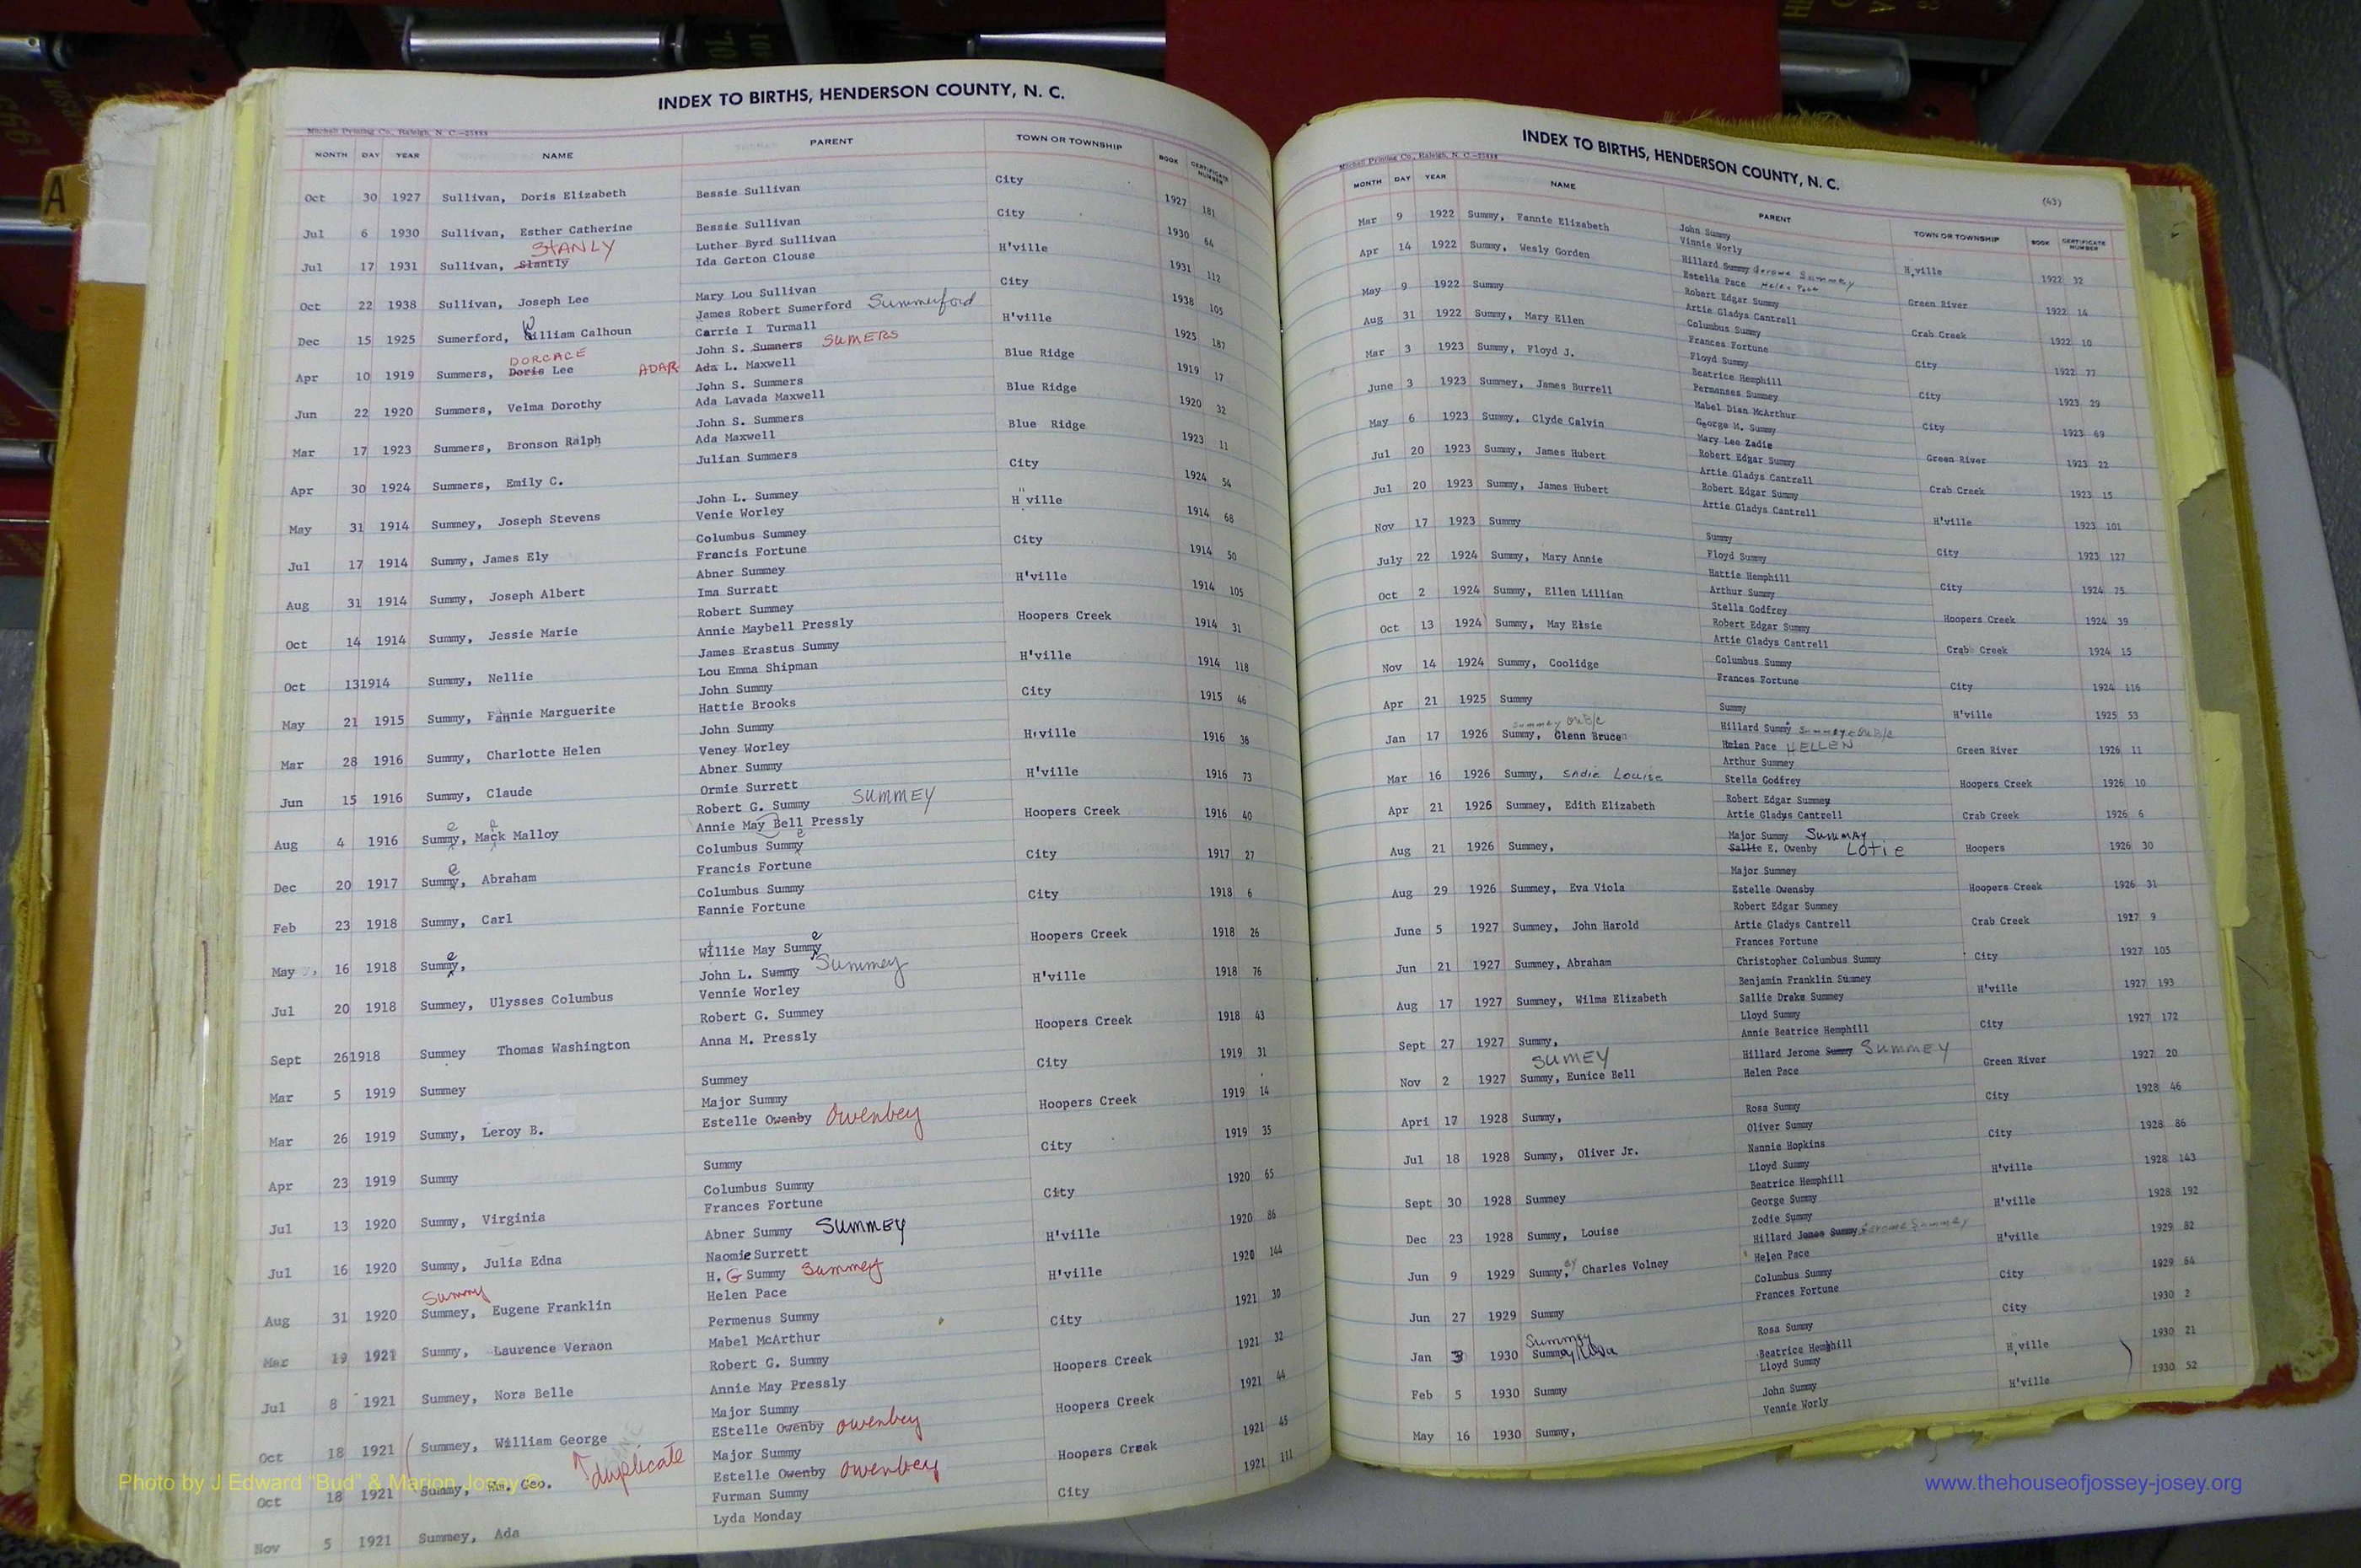 INDEX TO BIRTHS, HENDERSON COUNTY, N. C.
Mitchell Printing Co., Raleigh, N. C.—25888
MONTH DAY YEAR NAME PARENT TOWN OR TOWNSHIP BOOK CERTIFICATE NUMBER
Oct 30 1927 Sullivan, Doris Elizabeth Bessie Sullivan City 1927 181
Jul 6 1930 Sullivan, Esther Catherine Bessie Sullivan City 1930 64
STANLY Luther Byrd Sullivan
Jul 17 1931 Sullivan, Slantly Ida Gerton Clouse H'ville 1931 112
Oct 22 1938 Sullivan, Joseph Lee Mary Lou Sullivan City 1938 105
James Robert Sumerford Summerford
Dec 15 1925 Sumerford, William Calhoun Carrie I Turmall H'ville 1925 187
DORCACE John S. Sumners SUMERS
Apr 10 1919 Summers, Doris Lee ADAR Ada L. Maxwell Blue Ridge 1919 17
John S. Summers
Jun 22 1920 Summers, Velma Dorothy Ada Lavada Maxwell Blue Ridge 1920 32
John S. Summers
Mar 17 1923 Summers, Bronson Ralph Ada Maxwell Blue Ridge 1923 11
Apr 30 1924 Summers, Emily C. Julian Summers City 1924 54
John L. Summey
May 31 1914 Summey, Joseph Stevens Venie Worley H'ville 1914 68
Columbus Summey
Jul 17 1914 Summy, James Ely Francis Fortune City 1914 50
Abner Summey
Aug 31 1914 Summy, Joseph Albert Ima Surratt H'ville 1914 105
Robert Summey
Oct 14 1914 Summy, Jessie Marie Annie Maybell Pressly Hoopers Creek 1914 31
James Erastus Summy
Oct 131914 Summy, Nellie Lou Emma Shipman H'ville 1914 118
John Summy
May 21 1915 Summy, Fannie Marguerite Hattie Brooks City 1915 46
John Summy
Mar 28 1916 Summy, Charlotte Helen Veney Worley H'ville 1916 36
Abner Summy
Jun 15 1916 Summy, Claude Ormie Surrett H'ville 1916 73
Robert G. Summy SUMMEY
Aug 4 1916 Summy, Mack Malloy Annie May Bell Pressly Hoopers Creek 1916 40
Columbus Summy
Dec 20 1917 Summy, Abraham Francis Fortune City 1917 27
Columbus Summy
Feb 23 1918 Summy, Carl Fannie Fortune City 1918 6
May 16 1918 Summy, Willie May Summy Hoopers Creek 1918 26
John L. Summy Summey
Jul 20 1918 Summey, Ulysses Columbus Vennie Worley H'ville 1918 76
Robert G. Summey
Sept 261918 Summey Thomas Washington Anna M. Pressly Hoopers Creek 1918 43
Mar 5 1919 Summey Summey City 1919 31
Major Summy
Mar 26 1919 Summy, Leroy B. Estelle Owenby Owenbey Hoopers Creek 1919 14
Apr 23 1919 Summy Summy City 1919 35
Columbus Summy
Jul 13 1920 Summy, Virginia Frances Fortune City 1920 65
Abner Summy SUMMEY
Jul 16 1920 Summy, Julia Edna Naomie Surrett H'ville 1920 86
Summy H. G Summy Summey
Aug 31 1920 Summey, Eugene Franklin Helen Pace H'ville 1920 144
Permenus Summy
Mar 19 1921 Summy, Laurence Vernon Mabel McArthur City 1921 30
Robert G. Summy
Jul 8 1921 Summey, Nora Belle Annie May Pressly Hoopers Creek 1921 32
Major Summy
Oct 18 1921 Summey, William George EStelle Owenby Owenbey Hoopers Creek 1921 44
duplicate Major Summy
Oct 18 1921 Summy, Wm. Geo. Estelle Owenby Owenbey Hoopers Creek 1921 45
Furman Summy
Nov 5 1921 Summey, Ada Lyda Monday City 1921 111
INDEX TO BIRTHS, HENDERSON COUNTY, N. C.
Mitchell Printing Co., Raleigh, N. C.—25888
(43)
MONTH DAY YEAR NAME PARENT TOWN OR TOWNSHIP BOOK CERTIFICATE NUMBER
John Summy
Mar 9 1922 Summy, Fannie Elizabeth Vinnie Worly H'ville 1922 32
Hillard Summy Jerome Summey
Apr 14 1922 Summy, Wesly Gorden Estella Pace Helen Pace Green River 1922 14
Robert Edgar Summy
May 9 1922 Summy Artie Gladys Cantrell Crab Creek 1922 10
Columbus Summy
Aug 31 1922 Summy, Mary Ellen Frances Fortune City 1922 77
Floyd Summy
Mar 3 1923 Summy, Floyd J. Beatrice Hemphill City 1923 29
Permanses Summey
June 3 1923 Summey, James Burrell Mabel Dian McArthur City 1923 69
George M. Summy
May 6 1923 Summy, Clyde Calvin Mary Lee Zadie Green River 1923 22
Robert Edgar Summy
Jul 20 1923 Summy, James Hubert Artie Gladys Cantrell Crab Creek 1923 15
Robert Edgar Summy
Jul 20 1923 Summy, James Hubert Artie Gladys Cantrell H'ville 1923 101
Nov 17 1923 Summy Summy City 1923 127
Floyd Summy
July 22 1924 Summy, Mary Annie Hattie Hemphill City 1924 75
Arthur Summy
Oct 2 1924 Summy, Ellen Lillian Stella Godfrey Hoopers Creek 1924 39
Robert Edgar Summy
Oct 13 1924 Summy, May Elsie Artie Gladys Cantrell Crab Creek 1924 15
Columbus Summy
Nov 14 1924 Summy, Coolidge Frances Fortune City 1924 116
Apr 21 1925 Summy Summy H'ville 1925 53
Summey on B/c Hillard Summy Summey on B/c
Jan 17 1926 Summy, Glenn Brucen Helen Pace HELLEN Green River 1926 11
Arthur Summey
Mar 16 1926 Summy, Sadie Louise Stella Godfrey Hoopers Creek 1926 10
Robert Edgar Summey
Apr 21 1926 Summey, Edith Elizabeth Artie Gladys Cantrell Crab Creek 1926 6
Major Summy SummAy
Aug 21 1926 Summey, Sallie E. Owenby Lotie Hoopers 1926 30
Major Summey
Aug 29 1926 Summey, Eva Viola Estelle Owensby Hoopers Creek 1926 31
Robert Edgar Summey
June 5 1927 Summey, John Harold Artie Gladys Cantrell Crab Creek 1927 9
Frances Fortune
Jun 21 1927 Summey, Abraham Christopher Columbus Summy City 1927 105
Benjamin Franklin Summey
Aug 17 1927 Summey, Wilma Elizabeth Sallie Drake Summey H'ville 1927 193
Lloyd Summy
Sept 27 1927 Summy, Annie Beatrice Hemphill City 1927 172
SUMEY Hillard Jerome Summy SUMMEY
Nov 2 1927 Summy, Eunice Bell Helen Pace Green River 1927 20
Apri 17 1928 Summy, Rosa Summy City 1928 46
Oliver Summy
Jul 18 1928 Summy, Oliver Jr. Nannie Hopkins City 1928 86
Lloyd Summy
Sept 30 1928 Summey Beatrice Hemphill H'ville 1928 143
George Summy
Dec 23 1928 Summy, Louise Zodie Summy H'ville 1928 192
Hillard Jones Summy Jerome Summey
Jun 9 1929 Summy, Charles Volney Helen Pace H'ville 1929 82
Columbus Summy
Jun 27 1929 Summy Frances Fortune City 1929 64
Summey
Jan 3 1930 Summy, Rosa Rosa Summy City 1930 2
Beatrice Hemphill
Feb 5 1930 Summy Lloyd Summy H'ville 1930 21
John Summy
May 16 1930 Summy, Vennie Worly H'ville 1930 52
Photo by J Edward "Bud" & Marion Josey ©
www.thehouseofjossey-josey.org